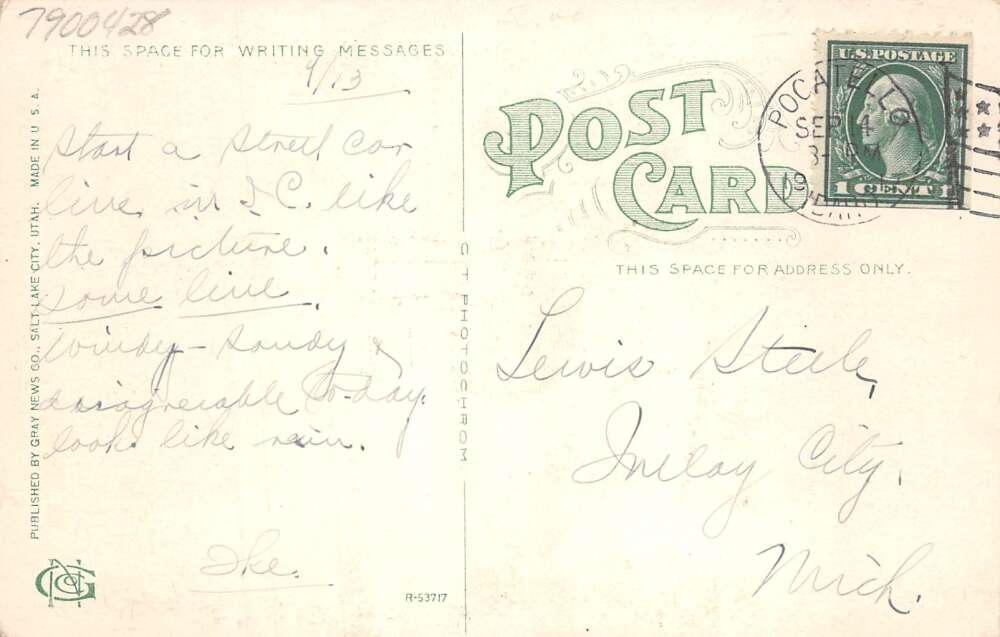 7900428
THIS SPACE FOR WRITING MESSAGES
9/13
Start a Street Car
line in I.C. like
the picture.
some line.
windy - Sandy &
disagreeable to-day.
looks like rain.
Ike.
PUBLISHED BY GRAY NEWS CO., SALT LAKE CITY, UTAH. MADE IN U.S.A.
C T PHOTOCHROM
R-53717
POST CARD
THIS SPACE FOR ADDRESS ONLY.
U.S. POSTAGE
1 CENT 1
POCATELLO
SEP 14
PM
19
IDAHO
Lewis Steele,
Imlay City,
Mich.